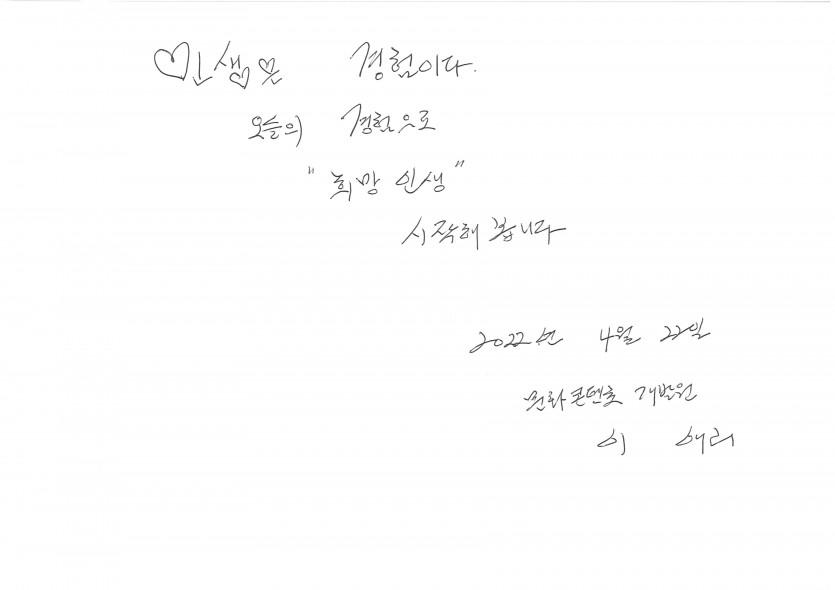 인생은 경험이다.
오늘의 경험으로
"희망 인생"
시작해 봅니다
2022년 4월 22일
문화콘텐츠 개발원
이 애리